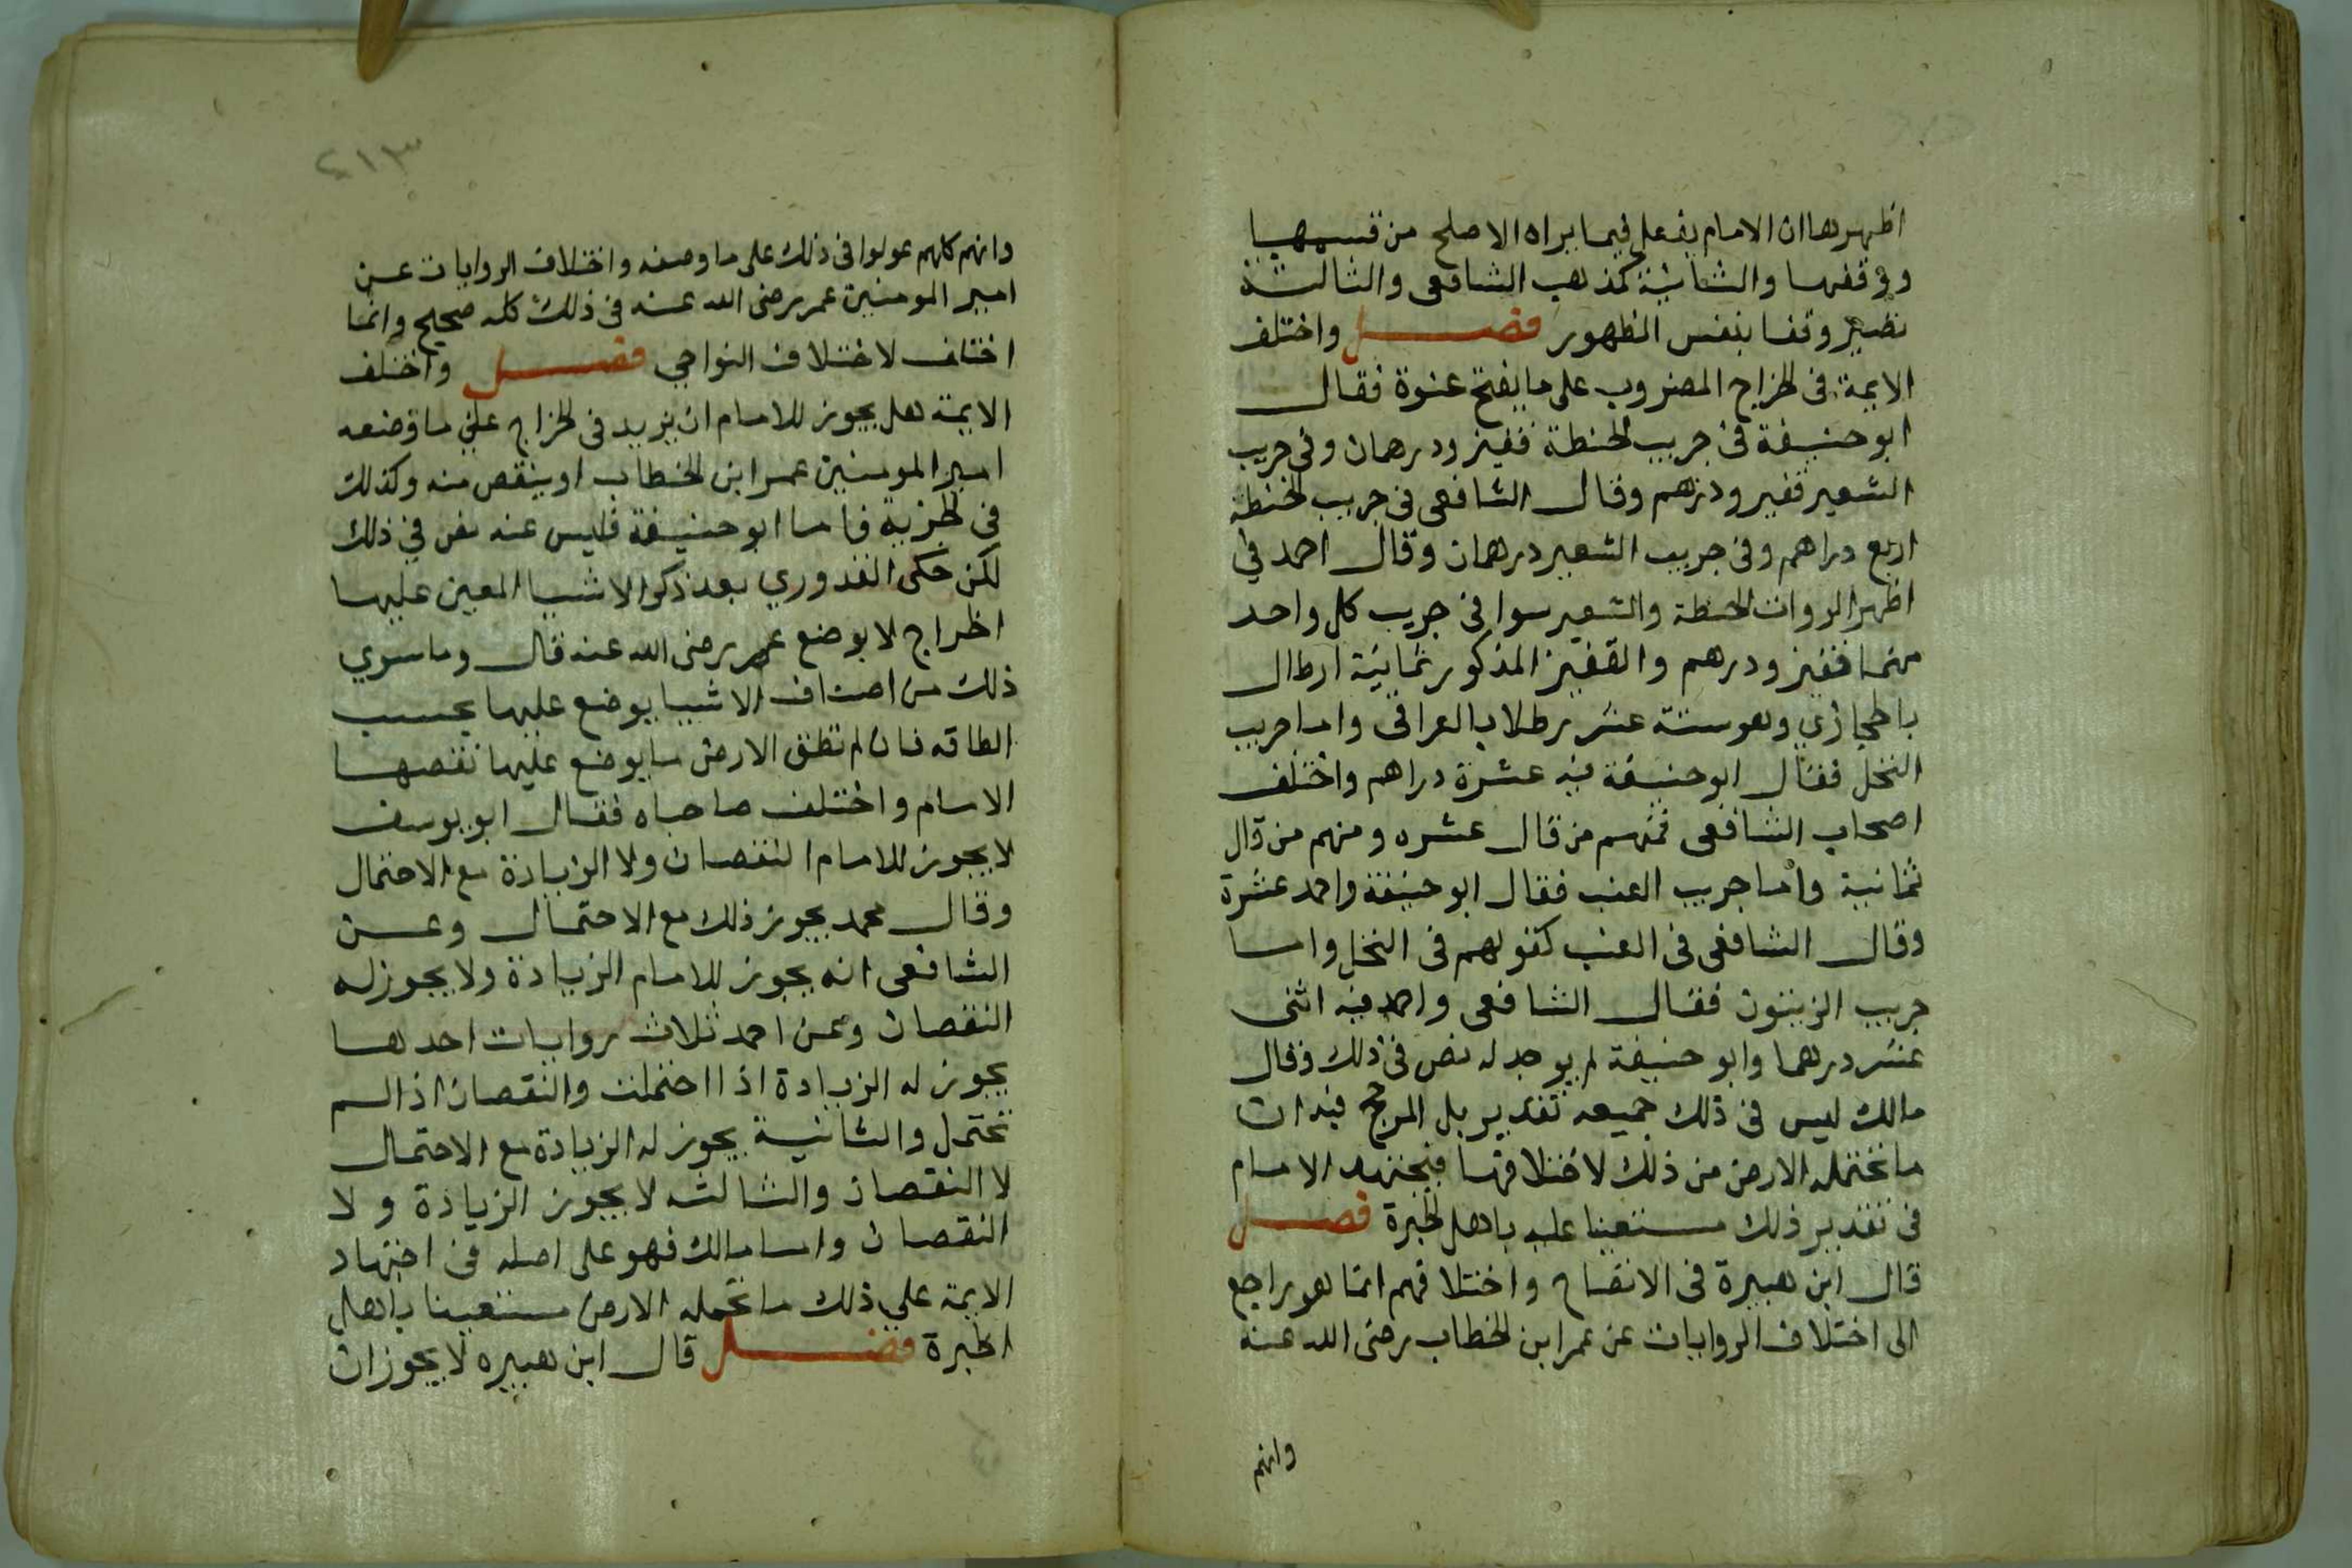 اظهرها ان الامام يفعل فيما يراه الاصلح من قسمهيا
ووقفها والثانية كمذهب الشافعى والثالثة
تصير وقفا بنفس الظهور فصل واختلف
الايمة فى الخراج المضروب على ما يفتح عنوة فقال
ابو حنيفة فى جريب الحنطة قفيز ودرهمان وفى جريب
الشعير قفيز ودرهم وقال الشافعى فى جريب الحنطة
اربع دراهم وفى جريب الشعير درهمان وقال احمد فى
اظهر الروات الحنطة والشعير سوا فى جريب كل واحد
منهما قفيز ودرهم والقفيز المذكور ثمانية ارطال
بالحجازي وهو ستة عشر رطلا بالعراقى واما جريب
النخل فقال ابو حنيفة فيه عشرة دراهم واختلف
اصحاب الشافعى فمنهم من قال عشره ومنهم من قال
ثمانية واما جريب العنب فقال ابو حنيفة واحمد عشرة
وقال الشافعى فى العنب كقولهم فى النخل واما
جريب الزيتون فقال الشافعى واحمد فيه اثنى
عشر درهما وابو حنيفة لم يوجد له نص فى ذلك وقال
مالك ليس فى ذلك جميعه تقدير بل المرجع فيه ان
ما تحتمله الارض من ذلك لاختلافها فيجتهد الامام
فى تقدير ذلك مستعينا عليه باهل الخبرة فصل
قال ابن هبيرة فى الافصاح واختلافهم انما هو راجع
الى اختلاف الروايات عن عمر ابن الخطاب رضى الله عنه
وانهم
٢١٣
وانهم كلهم عولوا فى ذلك على ما وصفه واختلاف الروايات عن
امير المومنين عمر رضى الله عنه فى ذلك كله صحيح وانما
اختلف لاختلاف النواحي فصل واختلف
الايمة هل يجوز للامام ان يزيد فى الخراج علي ما وضعه
امير المومنين عمر ابن الخطاب او ينقص منه وكذلك
فى الجزية فاما ابو حنيفة فليس عنه نص في ذلك
لكن حكى القدوري بعد ذكر الاشيا المعين عليها
الخراج لا يوضع عمر رضى الله عنه قال وما سوي
ذلك من اصناف الاشيا يوضع عليها بحسب
الطاقه فان لم تطق الارض ما يوضع عليها نقصها
الامام واختلف صاحباه فقال ابو يوسف
لا يجوز للامام النقصان ولا الزيادة مع الاحتمال
وقال محمد يجوز ذلك مع الاحتمال وعن
الشافعى انه يجوز للامام الزيادة ولا يجوز له
النقصان وعن احمد ثلاث روايات احدها
يجوز له الزيادة اذا احتملت والنقصان اذا لم
تحتمل والثانية يجوز له الزيادة مع الاحتمال
لا النقصان والثالثه لا يجوز الزيادة ولا
النقصان واما مالك فهو على اصله فى اجتهاد
الايمة علي ذلك ما تحمله الارض مستعينا باهل
الخبرة فصل قال ابن هبيره لا يجوز ان